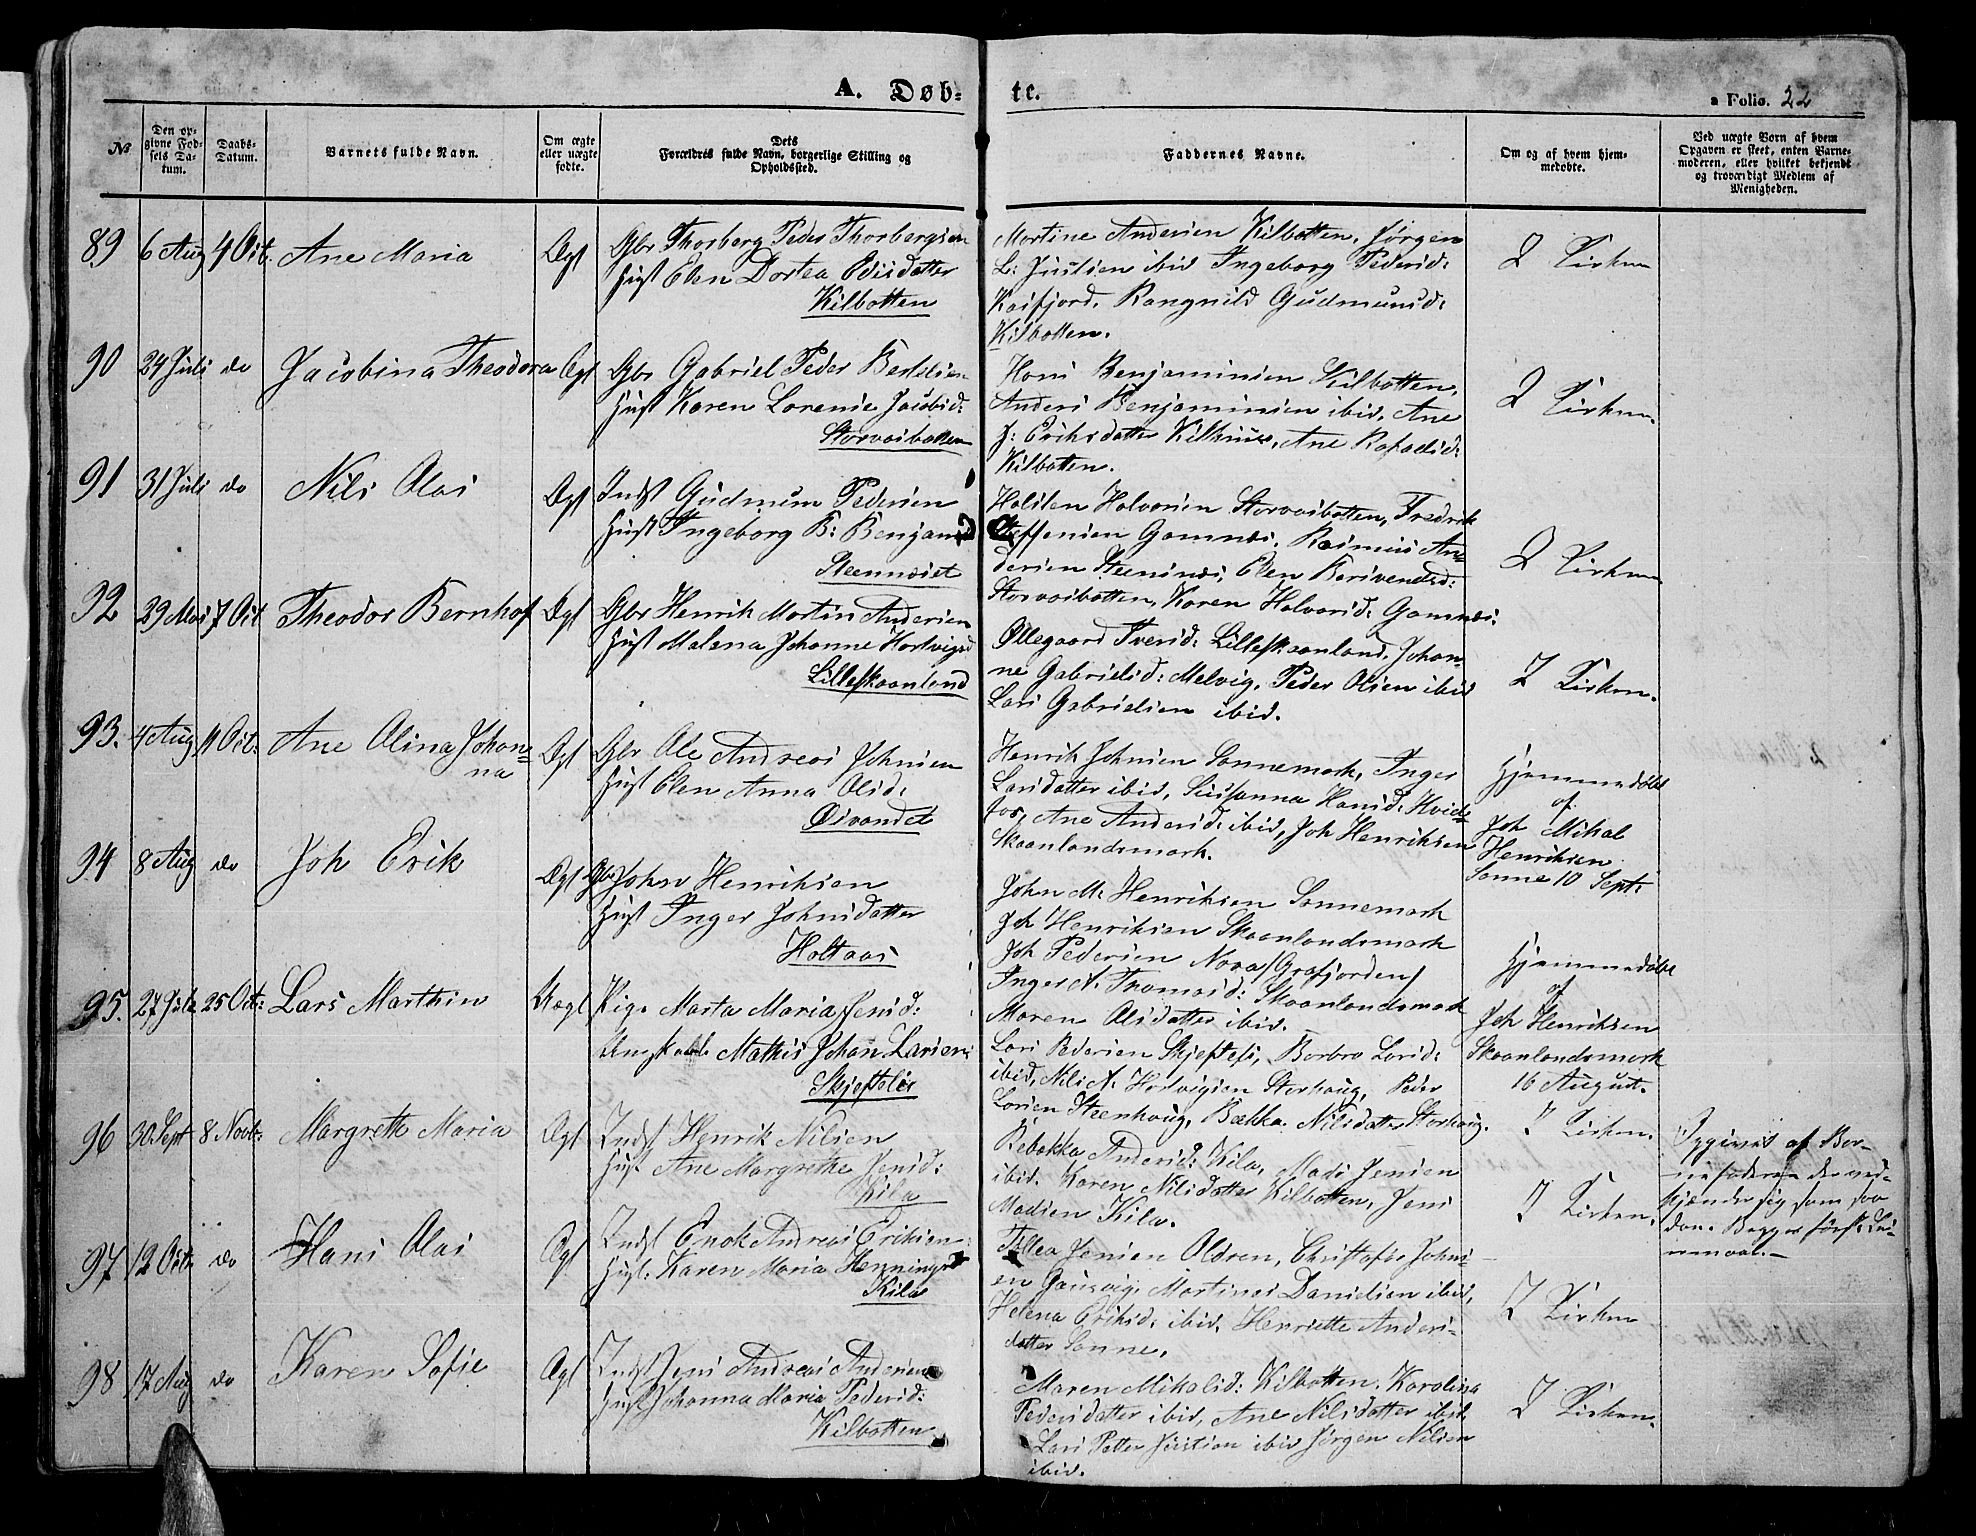 A. Døb-
te.
a Folio. 22
No
Den op-
givne Fød-
sels Da-
tum.
Daabs-
Datum.
Barnets fulde Navn.
Om ægte
eller uægte
fødte.
Dets
Forældres fulde Navn, borgerlige Stilling og
Opholdssted.
Faddernes Navne.
Om og af hvem hjem-
medøbte.
Ved uægte Børn af hvem
Opgaven er skeet, enten Barne-
moderen, eller hvilket bekjendt
og troværdigt Medlem af
Menigheden.
89 6 Aug 4 Oct. Ane Maria Ægt Gbr Thorberg Peder Thorbergsen
Hust Elen Dortea Edisdatter
Kilbotten
Martine Andersen Kilbotten, Jørgen
L: Justsen ibid Ingeborg Pedersd:
Kasfjord. Rangnild Gudmunsd:
Kilbotten.
I Kirken
90 24 Juli do Jacobina Theodora Ægt Gbr Gabriel Peder Bertelsen
Hust Karen Lorense Jacobsd:
Storvasbotten
Hans Benjaminsen Kilbotten,
Anders Benjaminsen ibid, Ane
J: Eriksdatter Kilhuus, Ane Rafaelsd:
Kilbotten.
I Kirken.
91 31 Juli do Nils Olai Ægt Indst Gudmun Pedersen
Hust Ingeborg B: Benjamsd
Steennæset
Halsten Halvorsen Storvasbotten, Fredrik
Steffensen Gamnes, Rasmus An-
dersen Steensnes, Elen Berivendsd:
Storvasbotten, Karen Halvorsd: Gamnes.
I Kirken
92 29 Mai 7 Oct Theodor Bernhof Ægt Gbr Henrik Martin Andersen
Hust Malena Johanne Hartvigsd
Lilleskaanland
Ollegaard Iversd: Lilleskaanland, Johan-
ne Gabrielsd: Melvig, Peder Olsen ibid
Lars Gabrielsen ibid.
I Kirken.
93. 4 Aug 11 Oct: Ane Olina Johan-
na
Ægt Gbr Ole Andreas Johnsen
Hust Elen Anna Olsd:
Øivandet
Henrik Johnsen Sannemark, Inger
Larsdatter ibid, Susanna Hansd: Hvide-
for, Ane Andersd: ibid, Joh Henriksen
Skaanlandsmark.
Hjemmedøbt
af
Joh Mikal
Henriksen
Sanne 10 Sept:
94 8 Aug do Joh Erik Ægt Gbr John Henriksen
Hust Inger Johnsdatter
Holtaas
John M: Henriksen Sannemark
Joh Henriksen Skaanlandsmark
Joh Pedersen Nora/Grafjorden/
Inger A. Tromasd: Skaanlandsmark
Maren Olsdatter ibid.
Hjemmedøbt
af
Joh Henriksen
Skaanlandsmark
16 August.
95. 27 Juli 25 Oct: Lars Marthin Uægt Pige Marta Maria Jensd:
Ungkarl Mathis Johan Larsen
Skjeftelis
Lars Pedersen Skjeftelis, Barbro Larsd:
ibid, Nils A. Hartvigsen Storhaug, Peder
Larsen Steenhaug, Bækka Nilsdatter Storhaug.
I Kirken.
Opgives af Bar-
nefaderen der ved-
kjender sig som saa-
dan. Begges første Lei-
ermaal.
96 30 Sept 8 Novb: Margrethe Maria Ægt Indst Henrik Nilsen
Hust Ane Margrethe Jensd:
Kila
Rebekka Andersd: Kila, Mads Jensen
ibid. Karen Nilsdatter Kilbotten, Jens
Madsen Kila.
I Kirken.
97 12 Octr do Hans Olai Ægt Indst Enok Andreas Eriksen
Hust. Karen Maria Henningsd
Kila
Jensen Oldren, Christofer Johns-
en Gausvig, Martines Danielsen ibid,
Helena Eriksd: ibid, Henriette Anders-
datter Sanne,
I Kirken
98 17 Aug do Karen Sofie Ægt Indst Jens Andreas Andersen
Hust Johanna Maria Pedersd:
Kilbotten
Maren Mikalsd: Kilbotten, Karolina
Pedersdatter ibid, Ane Nilsdatter ibid,
Lars Petter Justsen ibid Jørgen Nilsen
ibid.
I Kirken.